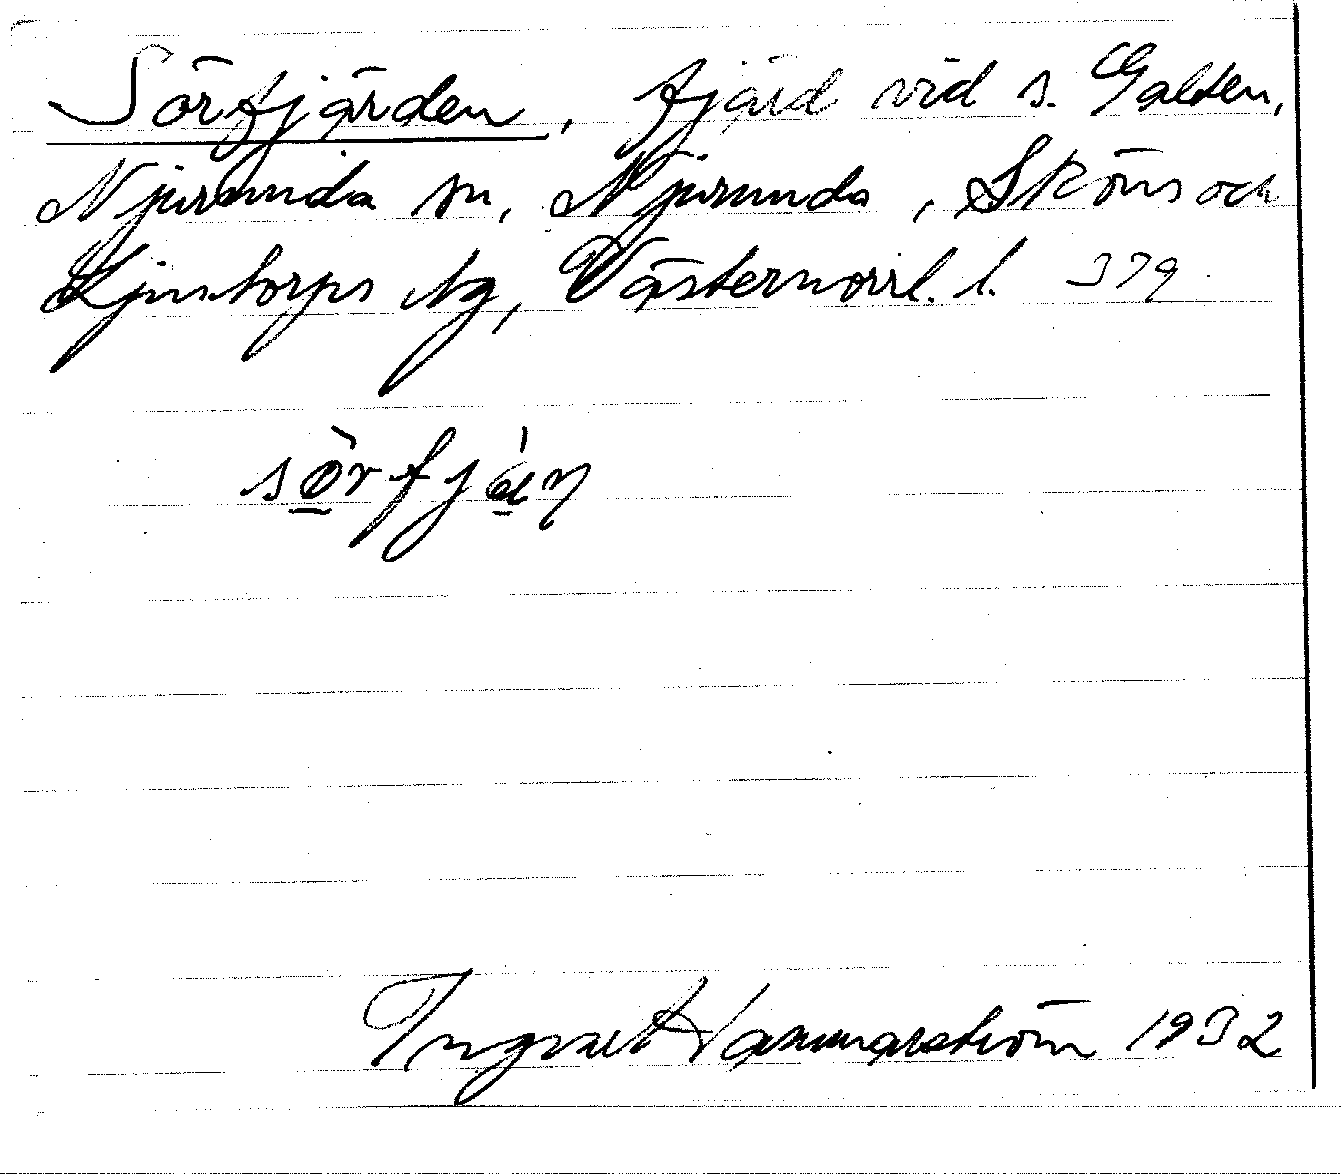 Sörfjärden, fjärd vid s. Galten,
Njurunda sn, Njurunda, Sköns och
Ljustorps tg, Västernorrl. l. 379.
Ingvar Hammarström 1932